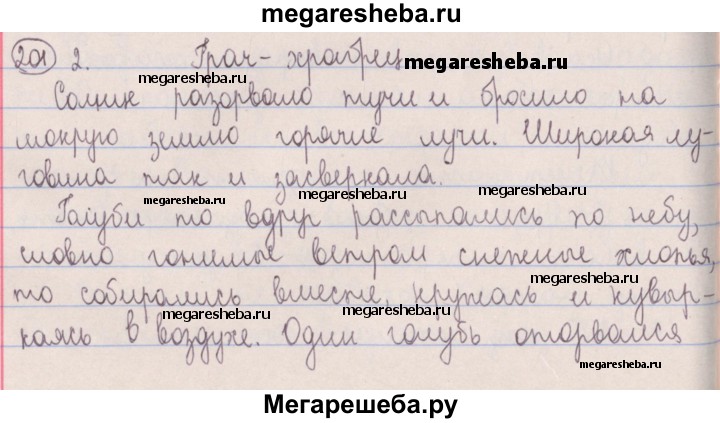 megaresheba.ru
201 2. Грач-храбрец
megaresheba.ru
megaresheba.ru
Солнце разорвало тучи и бросило на
megaresheba.ru
мокрую землю горячие лучи. Широкая лу-
говина так и засверкала.
megaresheba.ru
megaresheba.ru
megaresheba.ru
Голуби то вдруг рассыпались по небу,
словно гонимые ветром снежные хлопья,
megaresheba.ru
то собирались вместе, кружась и кувыр-
megaresheba.ru
megaresheba.ru
каясь в воздухе. Один голубь оторвался
megaresheba.ru
Мегарешеба.ру